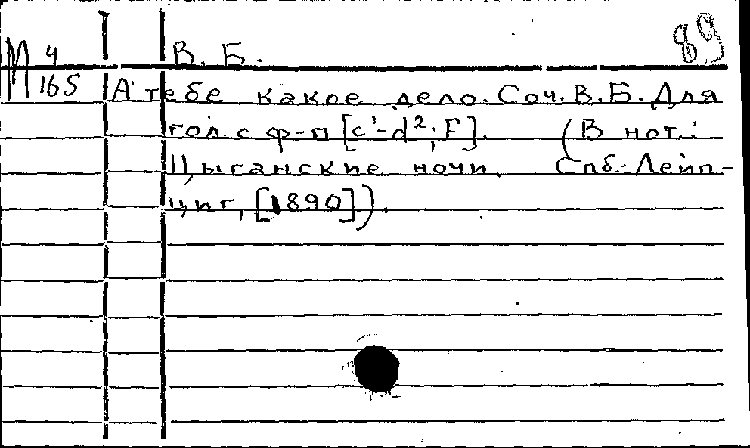 89
М 4 В. Б.
165 А тебе какое дело. Соч. В. Б. Для
гол. с ф-п [c'-d²; F]. (В нот.:
Цыганские ночи. Спб.-Лейп-
циг, [1890]).